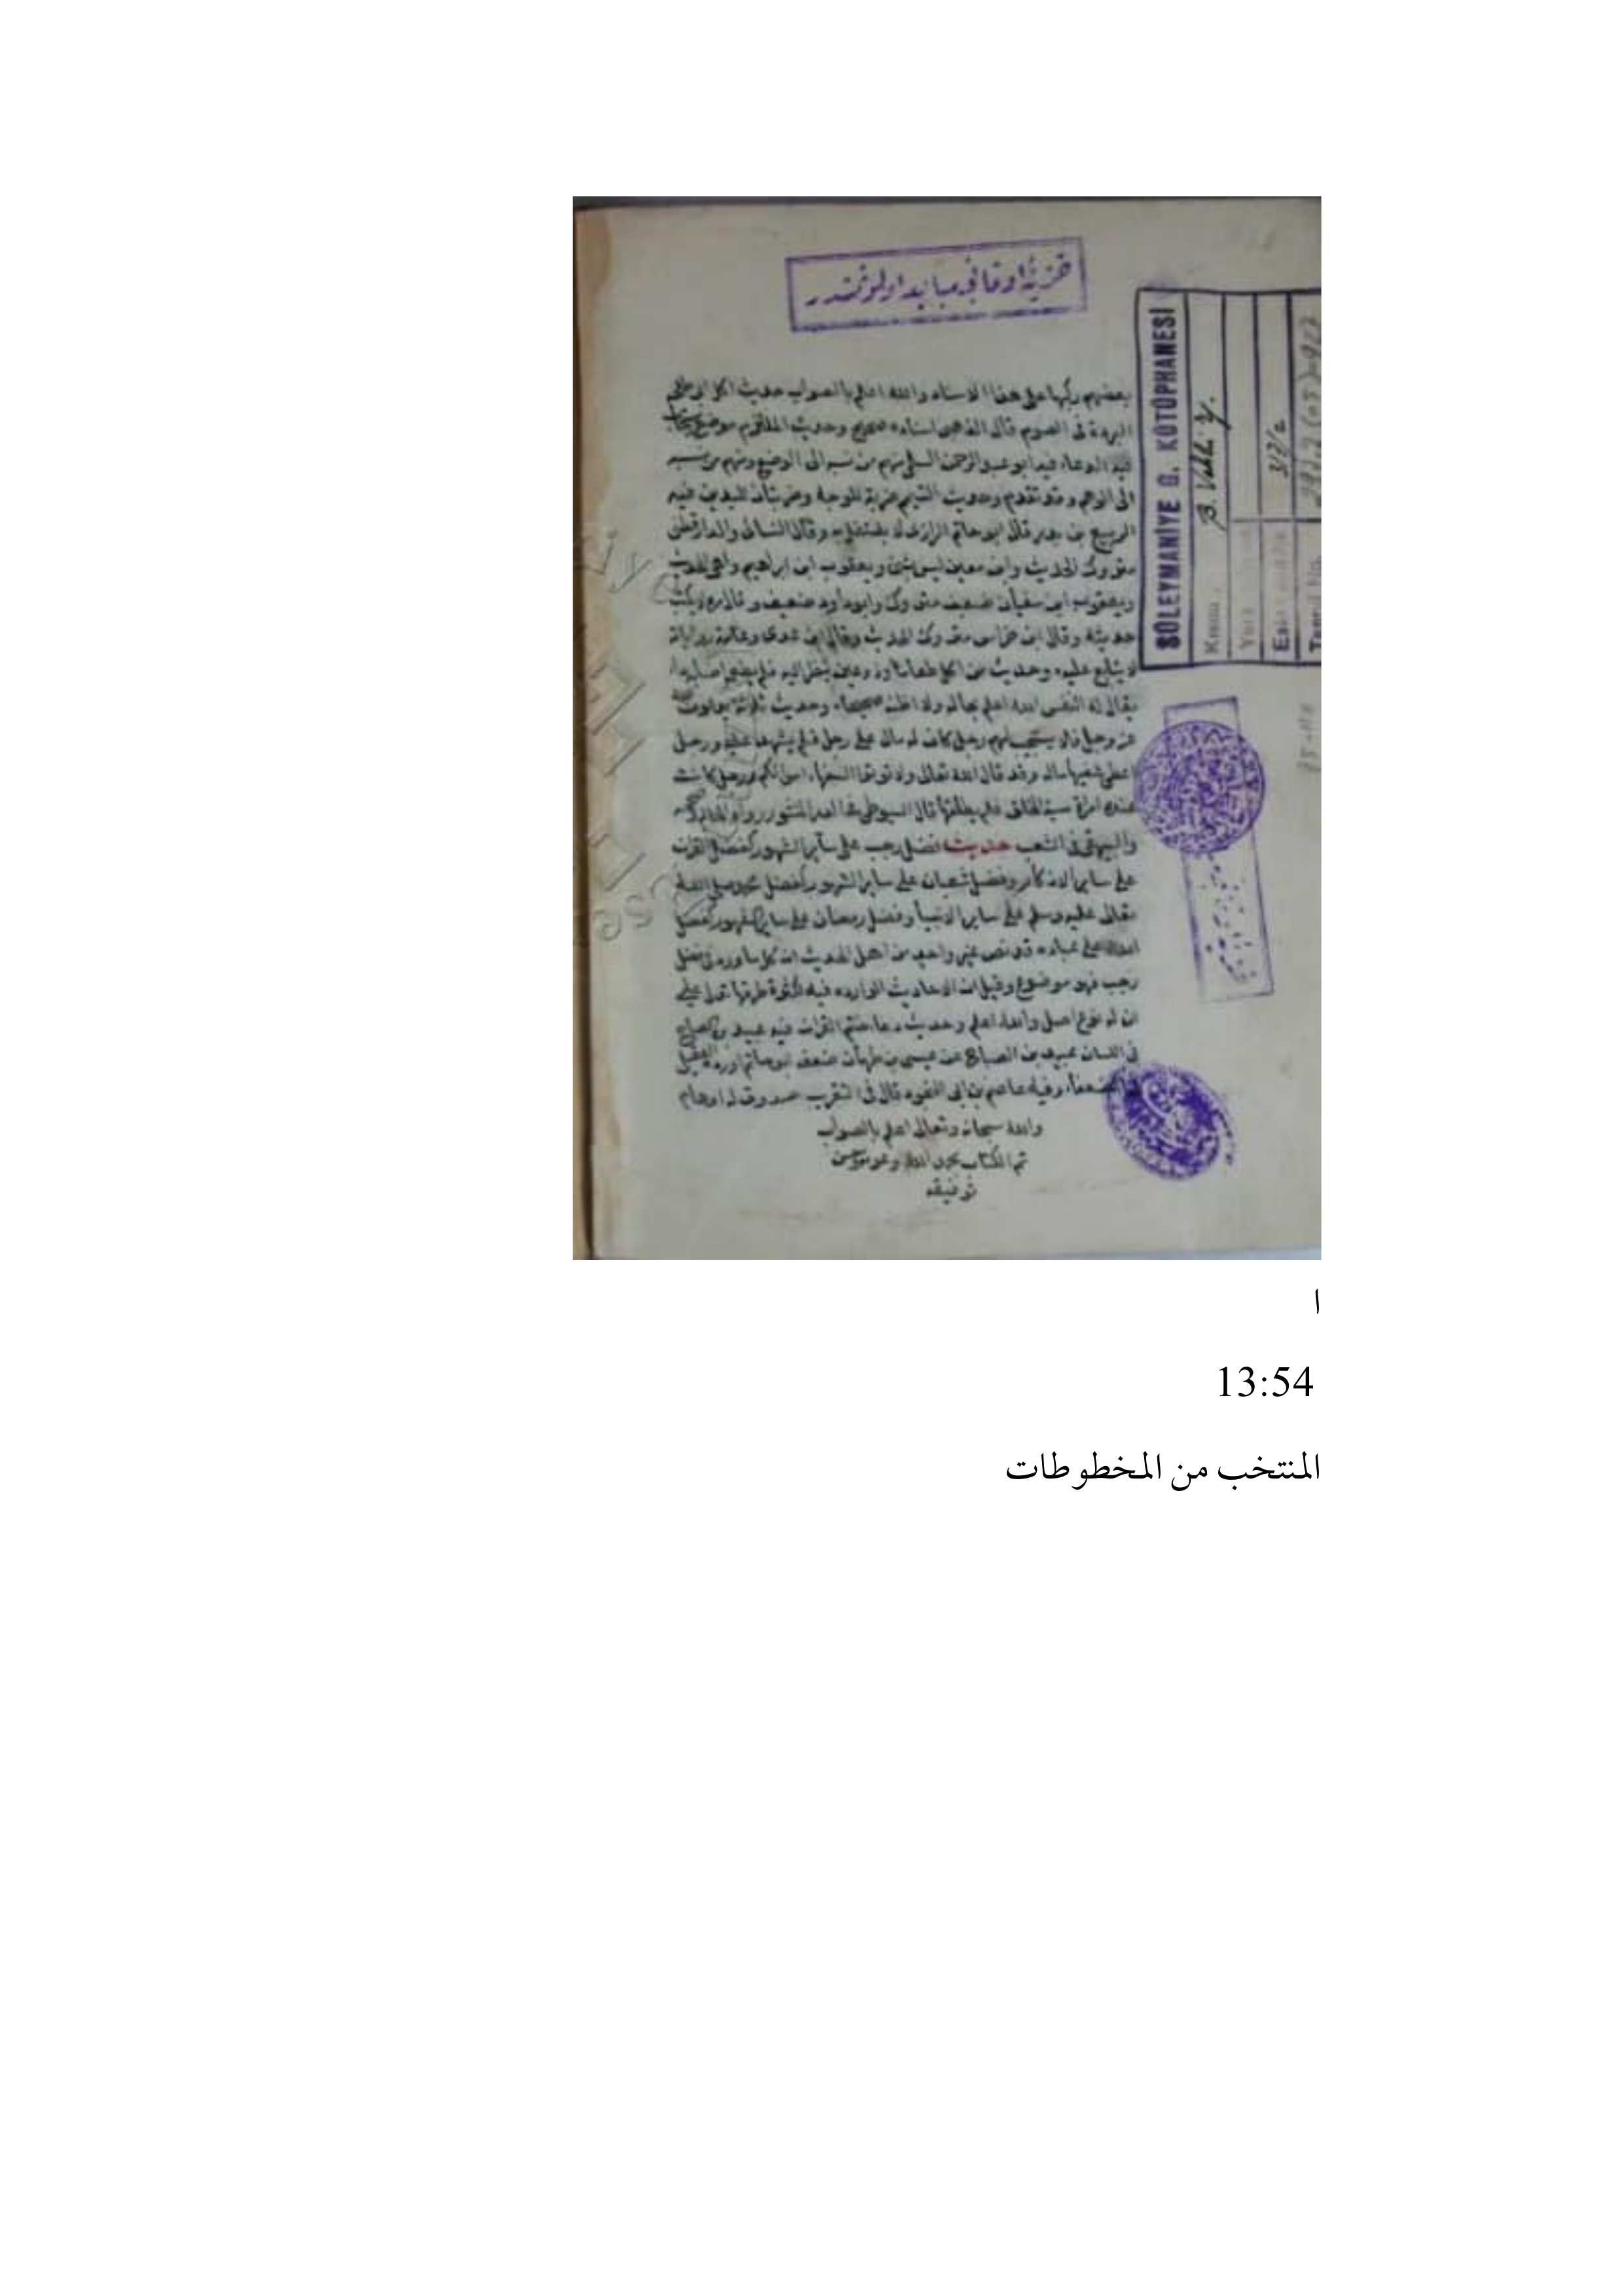 SÜLEYMANİYE G. KÜTÜPHANESİ
بعضهم ركبها على هذا الاسناد والله اعلم بالصواب حديث
البردة فى الصوم قال الذهبى اسناده صحيح وحديث موضع
الدعاء فيه ابو عبد الرحمن السلمى منهم من نسبه الى الوضع ومنهم من نسبه
الى الوهم وقد تقدم وحديث التيمم ضربة للوجه وضربتان لليدين فيه
الربيع بن بدر قال ابو حاتم الرازى لا يشتغل به وقال النسائى والدارقطنى
متروك الحديث وابن معين ليس بشئ ويعقوب ابن ابراهيم واهى الحديث
ويعقوب ابن سفيان ضعيف متروك وابو داود ضعيف وقال لا يكتب
حديثه وقال ابن خراش متروك الحديث وقال ابن عدى وعامة رواياته
لا يتابع عليه وحديث من اكل طعاما وذو عين ينظر اليه فلم
يقال له النفس الله اعلم بحاله ولا اظنه صحيحا وحديث ثلاثة يدعون
عز وجل فلا يستجيب لهم رجل كان له مال على رجل فلم يشهد عليه ورجل
اعطى سفيها ماله وقد قال الله تعالى ولا توتوا السفهاء اموالكم ورجل كانت
عنده امراة سيئة الخلق فلم يطلقها قال السيوطى فى الدر المنثور رواه الحاكم
والبيهقى فى الشعب حديث فضل رجب على ساير الشهور كفضل القران
على ساير الاذكار وفضل شعبان على ساير الشهور كفضل محمد صلى الله
تعالى عليه وسلم على ساير الانبيا وفضل رمضان على ساير الشهور كفضل
الله على عباده قد نص غير واحد من اهل الحديث ان كل ما ورد فى فضل
رجب فهو موضوع وقيل ان الاحاديث الوارده فيه لكثرة طرقها تدل على
ان له نوع اصل والله اعلم وحديث دعا ختم القران فيه عبيد بن الصباح
فى اللسان عبيد بن الصباح عن عيسى بن طهمان ضعفه ابو حاتم اورده العقيلى
الضعفاء وفيه عاصم بن ابى النجود قال فى التقريب صدوق له اوهام
والله سبحانه وتعالى اعلم بالصواب
تم الكتاب بحمد الله وعونه وحسن
توفيقه
ا
13:54
المنتخب من المخطوطات